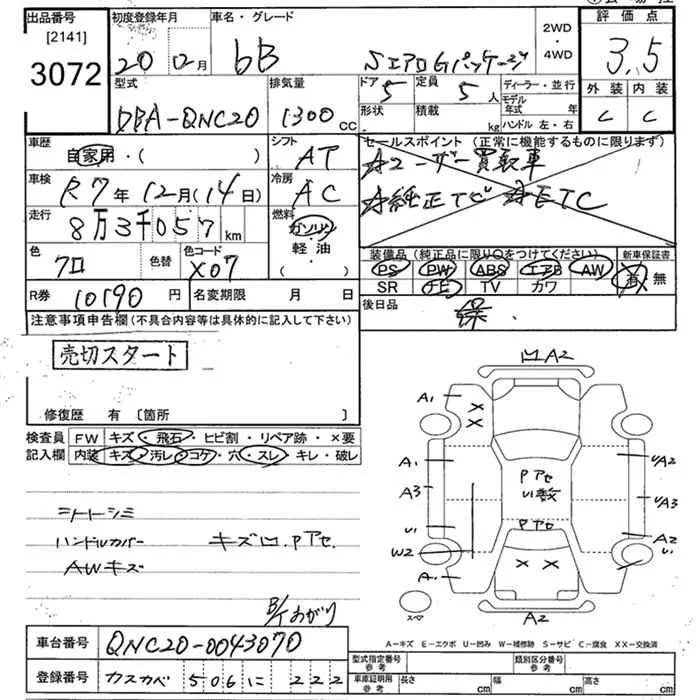 出品番号
[2141]
3072
初度登録年月
20 12月
車名・グレード
bB SエアロGパッケージ
2WD
・
4WD
評価点
3.5
外装 内装
C C
型式
DBA-QNC20
排気量
1300 CC
ドア
5
定員
5 人
形状
積載
kg
ディーラー・並行
モデル年式 年
ハンドル 左・右
車歴
自家用・( )
シフト
AT
車検
R7年12月(14日)
冷房
AC
走行
8万3千057km
燃料
ガソリン
軽・油
( )
色
クロ
色替
色コード
X07
R券 10190円
名変期限 月 日
セールスポイント (正常に機能するものに限ります)
ユーザー買取車
純正TV ETC
装備品(純正品に限り○をつけてください)
PS PW ABS エアB AW
SR ナビ TV カワ
新車保証書
有 無
後日品
保
注意事項申告欄(不具合内容等は具体的に記入して下さい)
売切スタート
修復歴 有 〔箇所 〕
検査員記入欄
FW キズ・飛石・ヒビ割・リペア跡・×要
内装 キズ・汚レ・コゲ・穴・スレ・キレ・破レ
シートシミ
ハンドルカバー キズ凹.Pアセ.
AWキズ
B/Tあがり
凹A2
A1
×
×
A1
A3
U1
W2
A1
Pアセ
U1数
Pアセ
× ×
A2
U/A2
U/A3
A2
U1
スペア
A-キズ E-エクボ U-凹み W-補修跡 S-サビ C-腐食 XX-交換済
車台番号 QNC20-0043070
登録番号 カスカベ 506 に 222
型式指定番号
参考
類別区分番号
参考
車庫証明用
参考
長さ cm
幅 cm
高さ cm